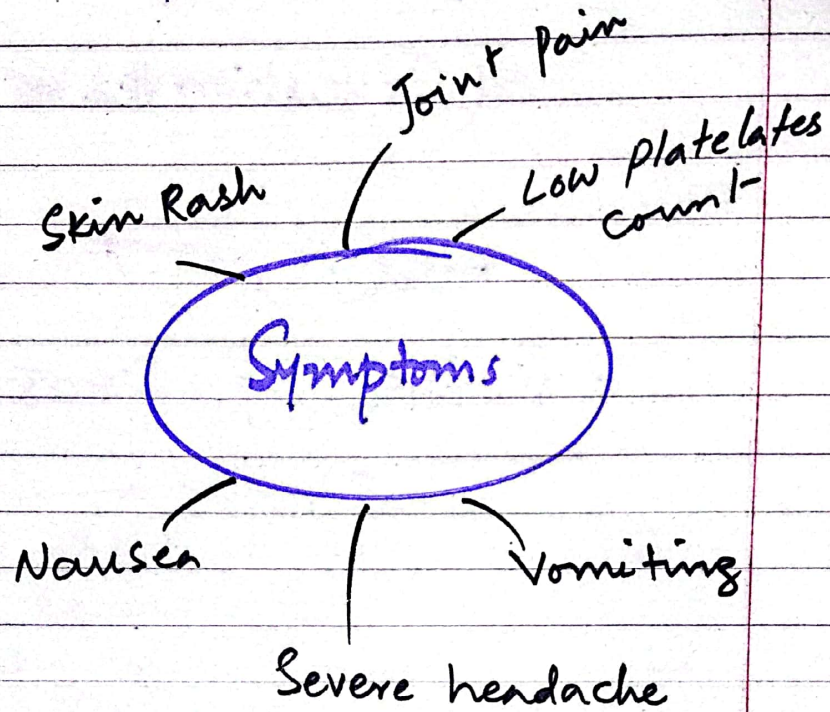 Joint Pain
Low Platelates
count
Skin Rash
Symptoms
Nausea
Vomiting
Severe headache